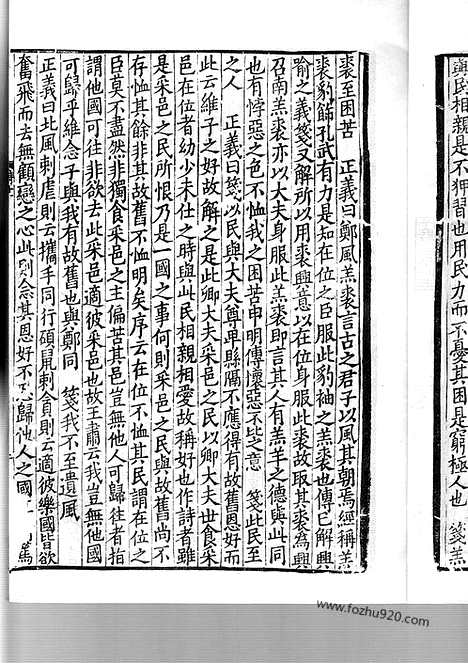 與民相親是不狎習也用民力而不憂其困是窮極人也　箋羔
裘至困苦　正義曰鄭風羔裘言古之君子以風其朝焉經稱羔
裘豹飾孔武有力是知在位之臣服此豹袖之羔裘也傳已解興
喻之義箋又解所以用裘興意以在位身服此裘故取其裘為興
召南羔裘亦以大夫身服此羔裘即言其人有羔羊之德與此同
也有悖惡之色不恤我之困苦申明傳懷惡不比之意　箋此民至
之人　正義曰箋以民與大夫尊卑縣隔不應得有故舊恩好而
此云維子之好故解之是此卿大夫采邑之民以卿大夫世食采
邑在位者幼少未仕之時與此民相親相愛故稱好也作詩者雖
是采邑之民所恨乃是一國之事何則采邑之民與故舊尚不
存恤其餘非其故舊不恤明矣序云在位不恤其民謂在位之
臣莫不盡然非獨食采邑之主偏苦其邑豈無他人可歸往者指
謂他國可往非欲去此采邑適彼采邑也故王肅云我豈無他國
可歸乎維念子與我有故舊也與鄭同　箋我不至遺風
正義曰北風刺虐則云攜手同行碩鼠刺貪則云適彼樂國皆欲
奮飛而去無顧戀之心此則念其恩好不忍歸他人之國
www.fozhu920.com